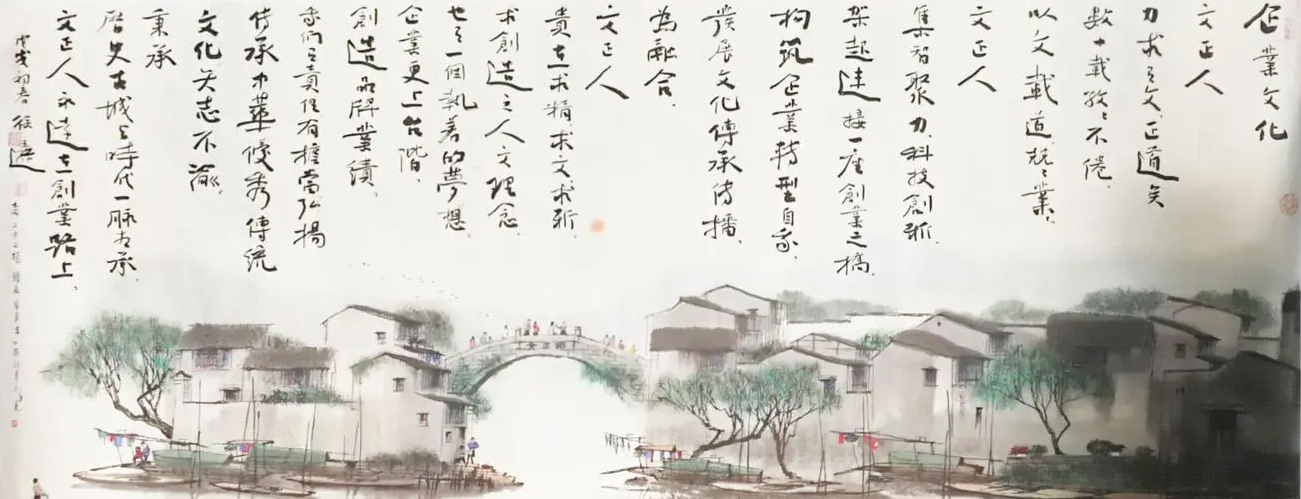 企業文化
文正人
力求以文、正道矣
数十載孜〻不倦、
以文載道、兢〻業、
文正人
集智聚力、科技創新、
架起連接一座創業之橋、
构筑企業转型自家、
發展文化傳承传播、
為融合、
文正人
貴在求精、求文求新、
求創造之人文理念、
也是一個執着的夢想、
企業更上台階、
創造品牌業績、
我們的責任有擔當弘揚
传承中華優秀傳统
文化矢志不渝、
秉承
歷史古城与時代一脉相承、
文正人永遠在創業路上、
戊戌初春
文正橋